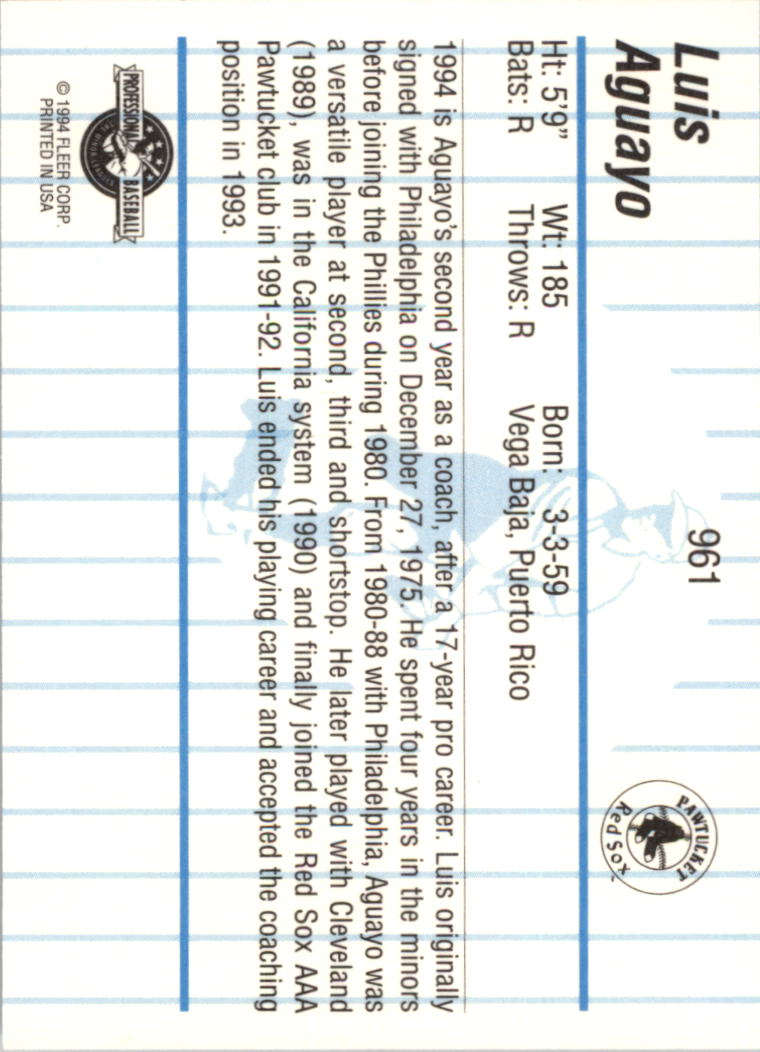 Luis
Aguayo
961
PAWTUCKET
Red Sox
Ht: 5'9" Wt: 185 Born: 3-3-59
Bats: R Throws: R Vega Baja, Puerto Rico
1994 is Aguayo's second year as a coach, after a 17-year pro career. Luis originally
signed with Philadelphia on December 27, 1975. He spent four years in the minors
before joining the Phillies during 1980. From 1980-88 with Philadelphia, Aguayo was
a versatile player at second, third and shortstop. He later played with Cleveland
(1989), was in the California system (1990) and finally joined the Red Sox AAA
Pawtucket club in 1991-92. Luis ended his playing career and accepted the coaching
position in 1993.
PROFESSIONAL BASEBALL
© 1994 FLEER CORP.
PRINTED IN USA